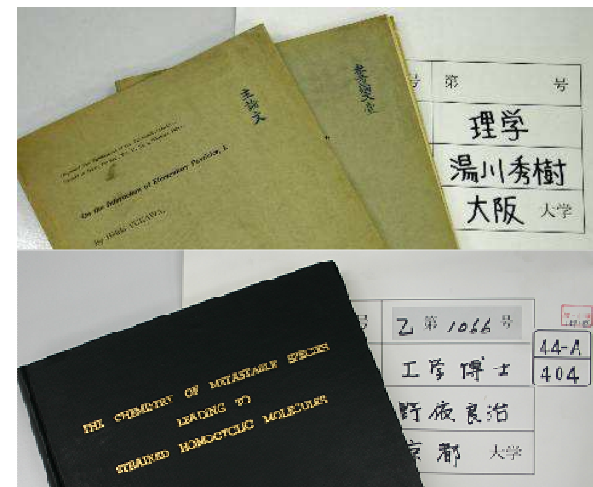 主論文
On the Interaction of Elementary Particles, I.
By Hideki YUKAWA.
参考論文
号 第 号
理学
湯川秀樹
大阪 大学
THE CHEMISTRY OF METASTABLE SPECIES
LEADING TO
STRAINED HOMOCYCLIC MOLECULES
号 乙 第 1066 号
工学博士
野依良治
京都 大学
44-A
404